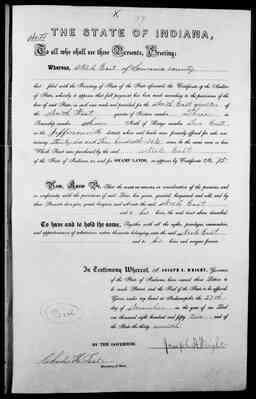 THE STATE OF INDIANA,
To all who shall see these Presents, Greeting:
Whereas, of county
has filed with the Secretary of State of the State aforesaid, the Certificate of the Auditor
of State, whereby it appears that full payment has been made according to the provisions of the
law of said State, in such case made and provided for the South East quarter
of the South East quarter of Section under
Township under North of Range under East
in the Jeffersonville district, which said lands were formerly offered for sale, containing
Hundredths acres, more or less
Which Tract was purchased by the said
of the State of Indiana, as and for SWAMP LAND, as appears by Certificate No. 85
Now, Know Ye, That the STATE OF INDIANA, in consideration of the premises, and
in conformity with the provisions of said Law, has given, granted, bargained and sold, and by
these Presents does give, grant, bargain and sell unto the said East
and to his heirs, the said tract above described.
To have and to hold the same, Together with all the rights, privileges, immunities,
and appurtenances of whatsoever nature thereunto belonging, unto the said East
and to his heirs and assigns forever.
In Testimony Whereof, I, JOSEPH A. WRIGHT, Governor
of the State of Indiana, have caused these Letters to
be made Patent, and the Seal of the State to be affixed.
Given under my hand at Indianapolis the 27th
day of December in the year of our Lord
one thousand eight hundred and fifty two and of
the State the thirty seventh
Seal
BY THE GOVERNOR.
Joseph A Wright
Charles H. Test
Secretary of State.